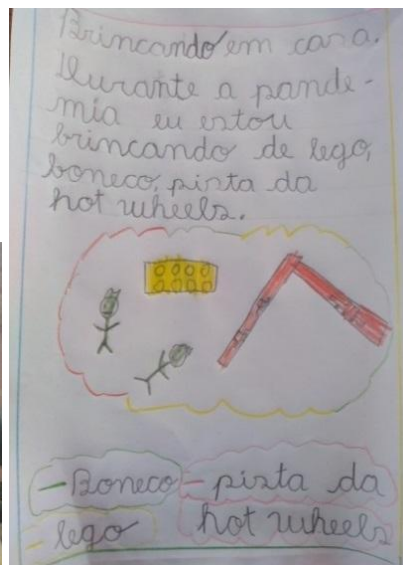 Brincando em casa.
Durante a pande-
mia eu estou
brincando de lego,
boneco, pista da
hot wheels.
- Boneco - pista da
- lego hot wheels